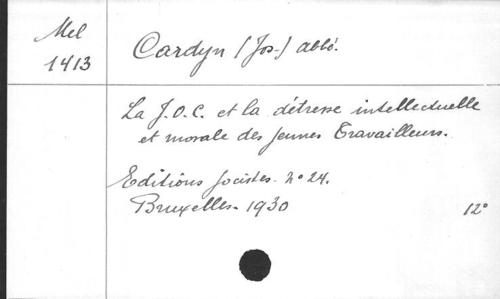 Mel
1413
Cardyn (Jos.) abbé.
La J.O.C. et la détresse intellectuelle
et morale des jeunes Travailleurs.
Editions Jocistes. n° 24.
Bruxelles - 1930
12°